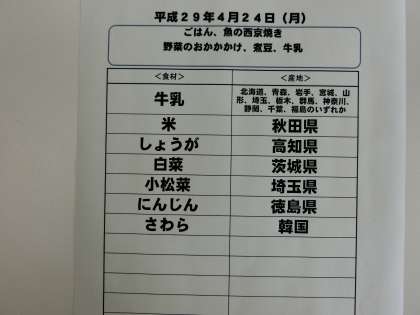 平成29年4月24日(月)
ごはん、魚の西京焼き
野菜のおかかかけ、煮豆、牛乳
<食材> <産地>
牛乳
北海道、青森、岩手、宮城、山
形、埼玉、栃木、群馬、神奈川、
静岡、千葉、福島のいずれか
米 秋田県
しょうが 高知県
白菜 茨城県
小松菜 埼玉県
にんじん 徳島県
さわら 韓国